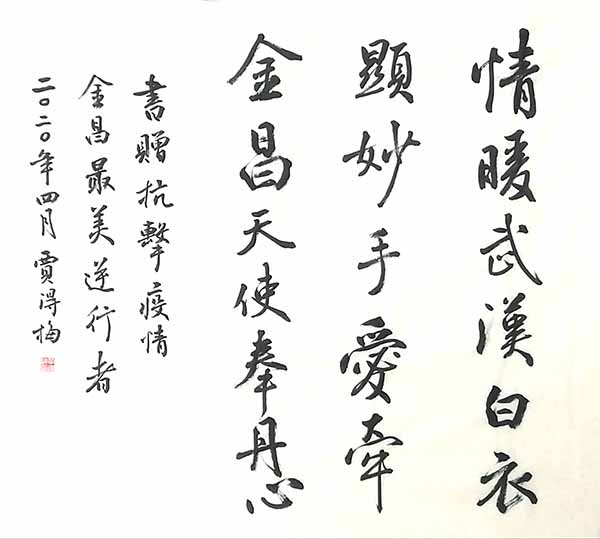 情暖武漢白衣
顯妙手愛牽
金昌天使奉丹心
書贈抗擊疫情
金昌最美逆行者
二〇二〇年四月賈得梅